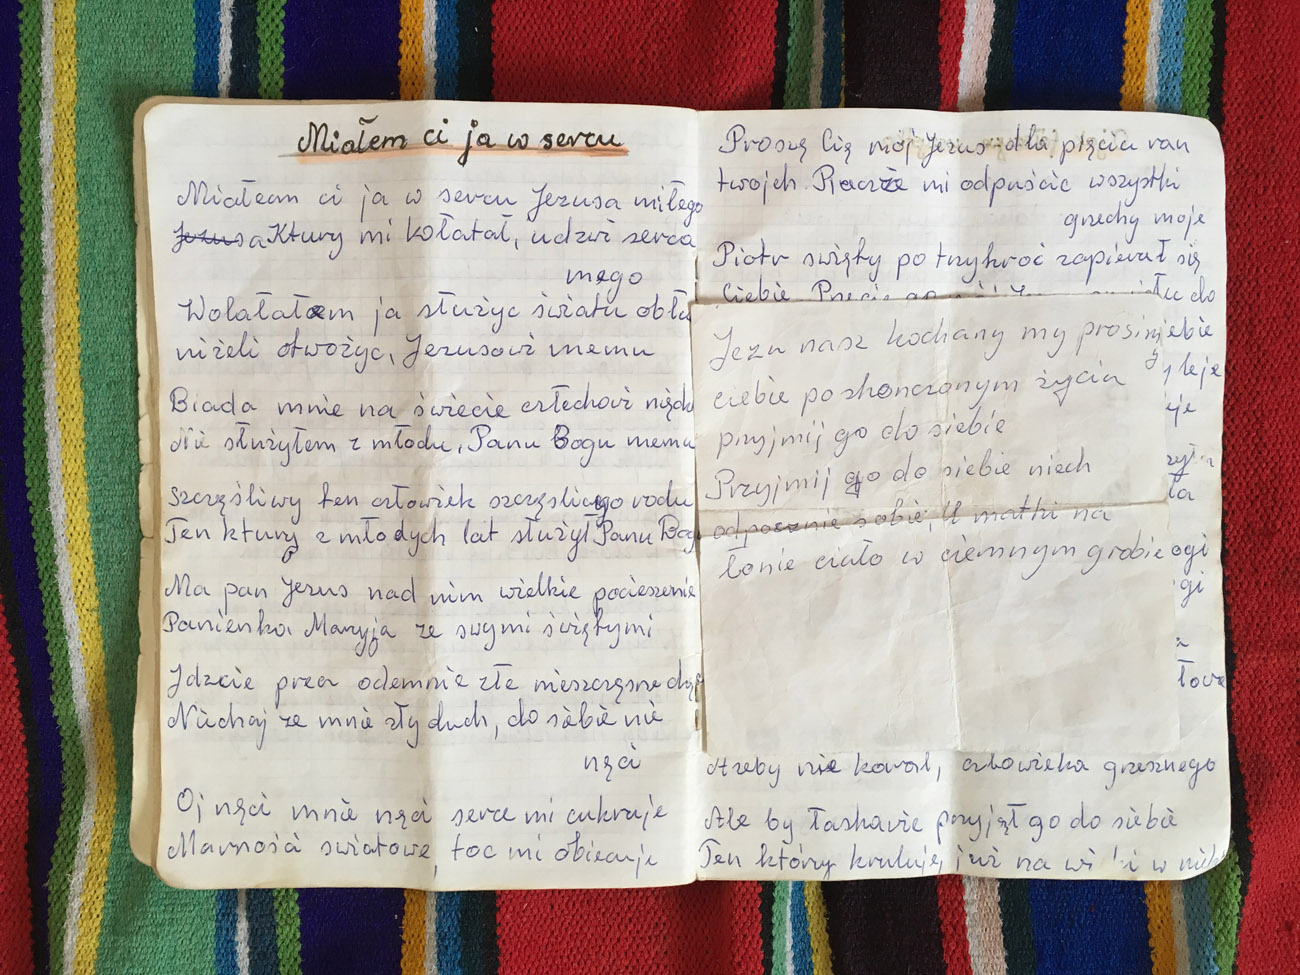 Miałem ci ja w sercu
Miałem ci ja w sercu Jezusa miłego
Jezusa Ktury mi kołatał, udzwi serca
mego
Wolałałem ja służyc światu obłu
niżeli otwożyc, Jezusowi memu
Biada mnie na świecie człechowi nędz
Nie służyłem z młodu, Panu Bogu memu
Szczęśliwy ten człowiek szczęslicgo rodu
Ten ktury z młodych lat służył Panu Bog
Ma pan Jezus nad nim wielkie pocieszenie
Panienka Maryja ze swymi świętymi
Jdzcie prea odemnie złe nieszczęsne
Niechaj ze mnie zły duch, do siebie nie
nęci
Oj nęci mnie nęci serce mi cukruje
Marności swiatowe, toc mi obiecuje
Proszę Cię mój Jezus dla pięciu ran
twojch Racze mi odpuścic wszystki
grzechy moje
Piotr swięty po trzykroć zapierał się
Ciebie
do
iebie
Jezu nasz kochany my prosimy
ciebie po skonczonym życia
pryjmij go do siebie
Przyjmij go do siebie niech
odpocznie sobie, U matki na
łonie ciało w ciemnym grobie
ogi
gi
Ażeby nie karał, człowieka gresznego
Ale by łaskawie pryjął go do siebie
Ten który kruluje, już na wi i w nieb